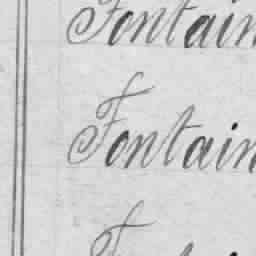 Fontain
Fontain